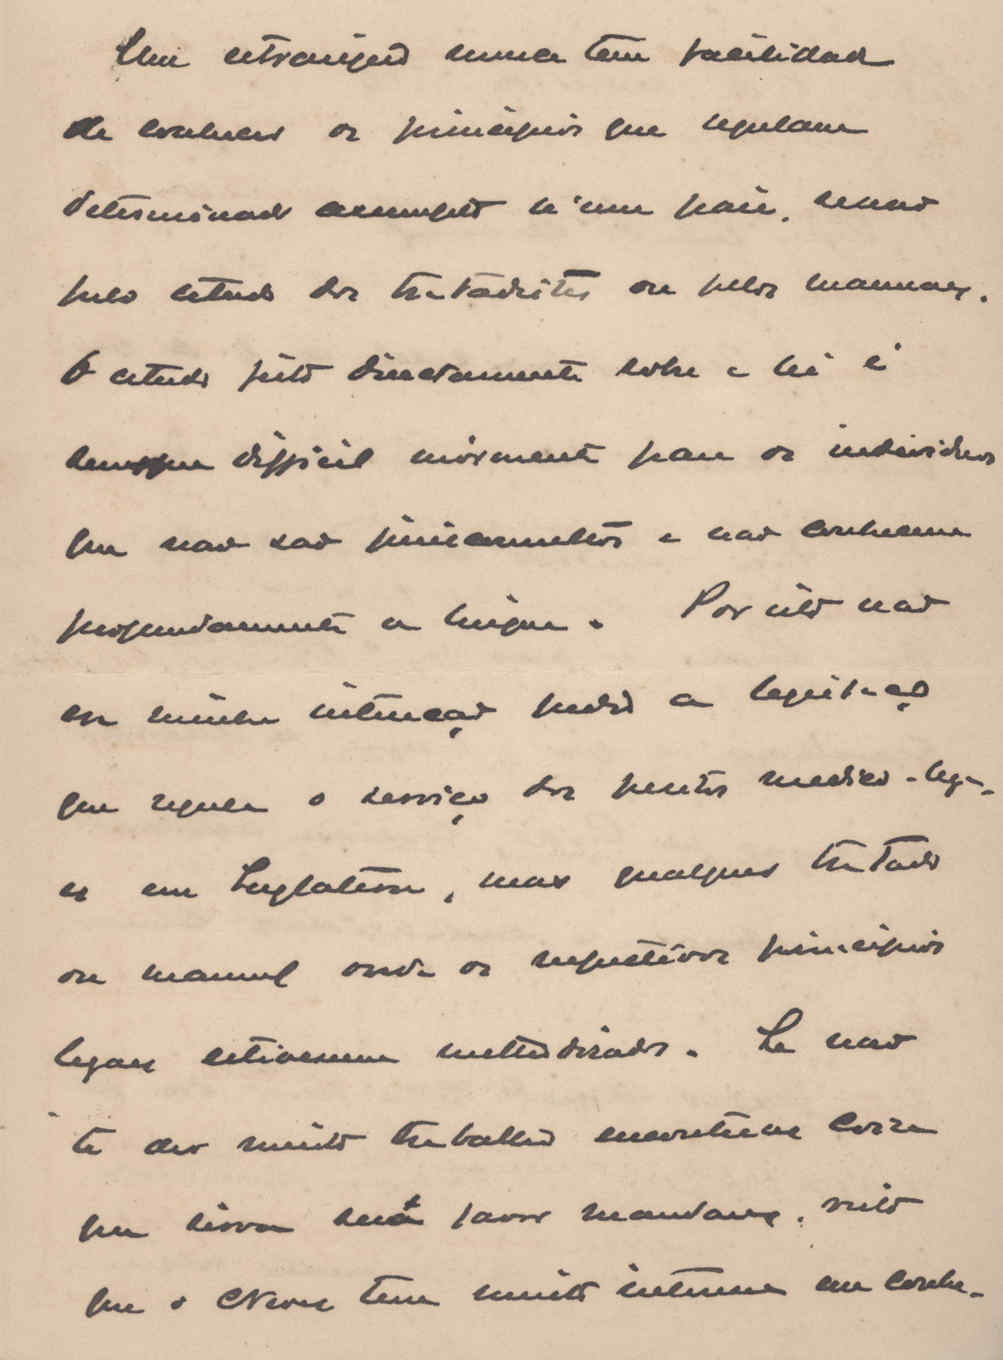 Um estrangeiro nunca tem facilidade
de conhecer os principios que regulam
determinado assumpto n'um paiz, senao
pelo estudo dos tratadistas ou pelos manuaes.
O estudo feito directamente sobre a lei é
sempre difficil mórmente para os individuos
que nao sao jurisconsultos e nao conhecem
profundamente a lingua. Por isto nao
era minha intençao pedir a legislaçao
que regula o serviço dos peritos medico-lega-
es em Inglaterra, mas qualquer tratado
ou manual onde os respectivos principios
legaes estivessem methodisados. Se nao
te der muito trabalho encontrar coisa
que sirva será favor mandares, visto
que o Neves tem muito interesse em conhe-